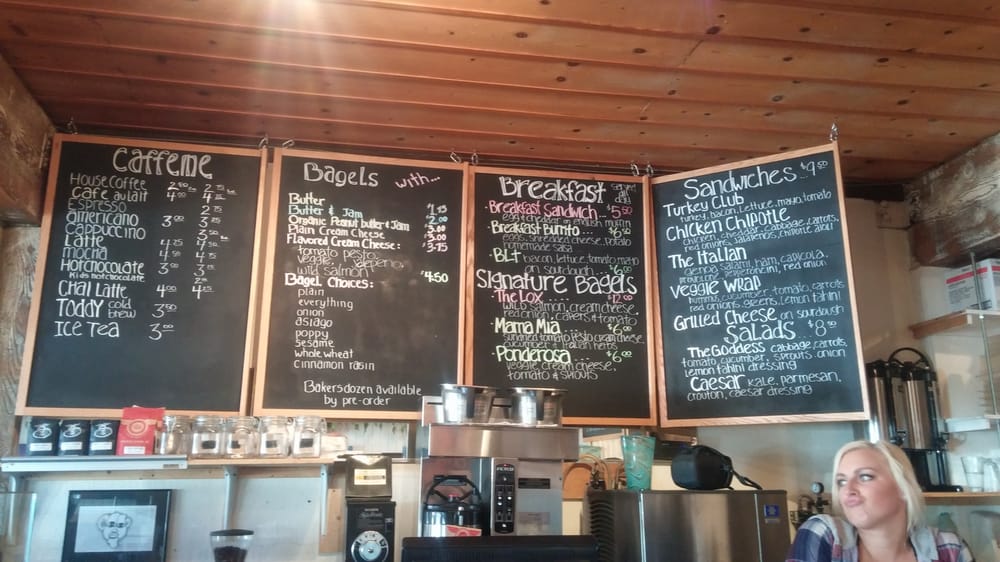 Caffeine
House Coffee 2.50 2.75
Cafe au lait 4.00 4.25
Espresso 2.75
americano 3.00 3.50
Cappuccino
Latte 4.25 4.50
mocha 4.50
Hot chocolate 3.00
Kids hot chocolate 2.00
Chai Latte 4.00 4.25
Toddy cold brew 3.50
Ice Tea 3.00
Bagels with...
Butter $1.75
Butter & Jam $2.00
Organic Peanut butter & Jam $3.00
Plain Cream Cheese $3.00
Flavored Cream Cheese: $3.75
tomato pesto,
veggie, jalapeno,
wild salmon $4.50
Bagel Choices:
plain
everything
onion
asiago
poppy
sesame
whole wheat
cinnamon raisin
Bakers dozen available
by pre-order
Breakfast served all day
·Breakfast Sandwich... $5.50
egg & cheddar on english muffin
·Breakfast Burrito... $6.50
eggs, shredded cheese, potato
homemade salsa
·BLT bacon, lettuce, tomato, mayo
on sourdough... $6.00
Signature Bagels
·The Lox... $12.00
wild salmon, cream cheese,
red onion, capers & tomato
·Mama Mia... $6.00
sundried tomato pesto cream cheese,
cucumber & Italian herbs
·Ponderosa... $6.00
veggie cream cheese,
tomato & sprouts
Sandwiches $9.50
Turkey Club
turkey, bacon, lettuce, mayo, tomato
Chicken Chipotle
chicken, cheddar, cabbage, carrots,
red onions, jalapenos, chipotle aioli
The Italian
genoa salami, ham, capicola,
provolone, pepperoncini, red onion
Veggie Wrap
hummus, cucumber, tomato, carrots
red onions, greens, lemon tahini
Grilled Cheese on sourdough
Salads $8.50
The Goddess cabbage, carrots,
tomato, cucumber, sprouts, onion
Lemon tahini dressing
Caesar kale, parmesan,
crouton, caesar dressing